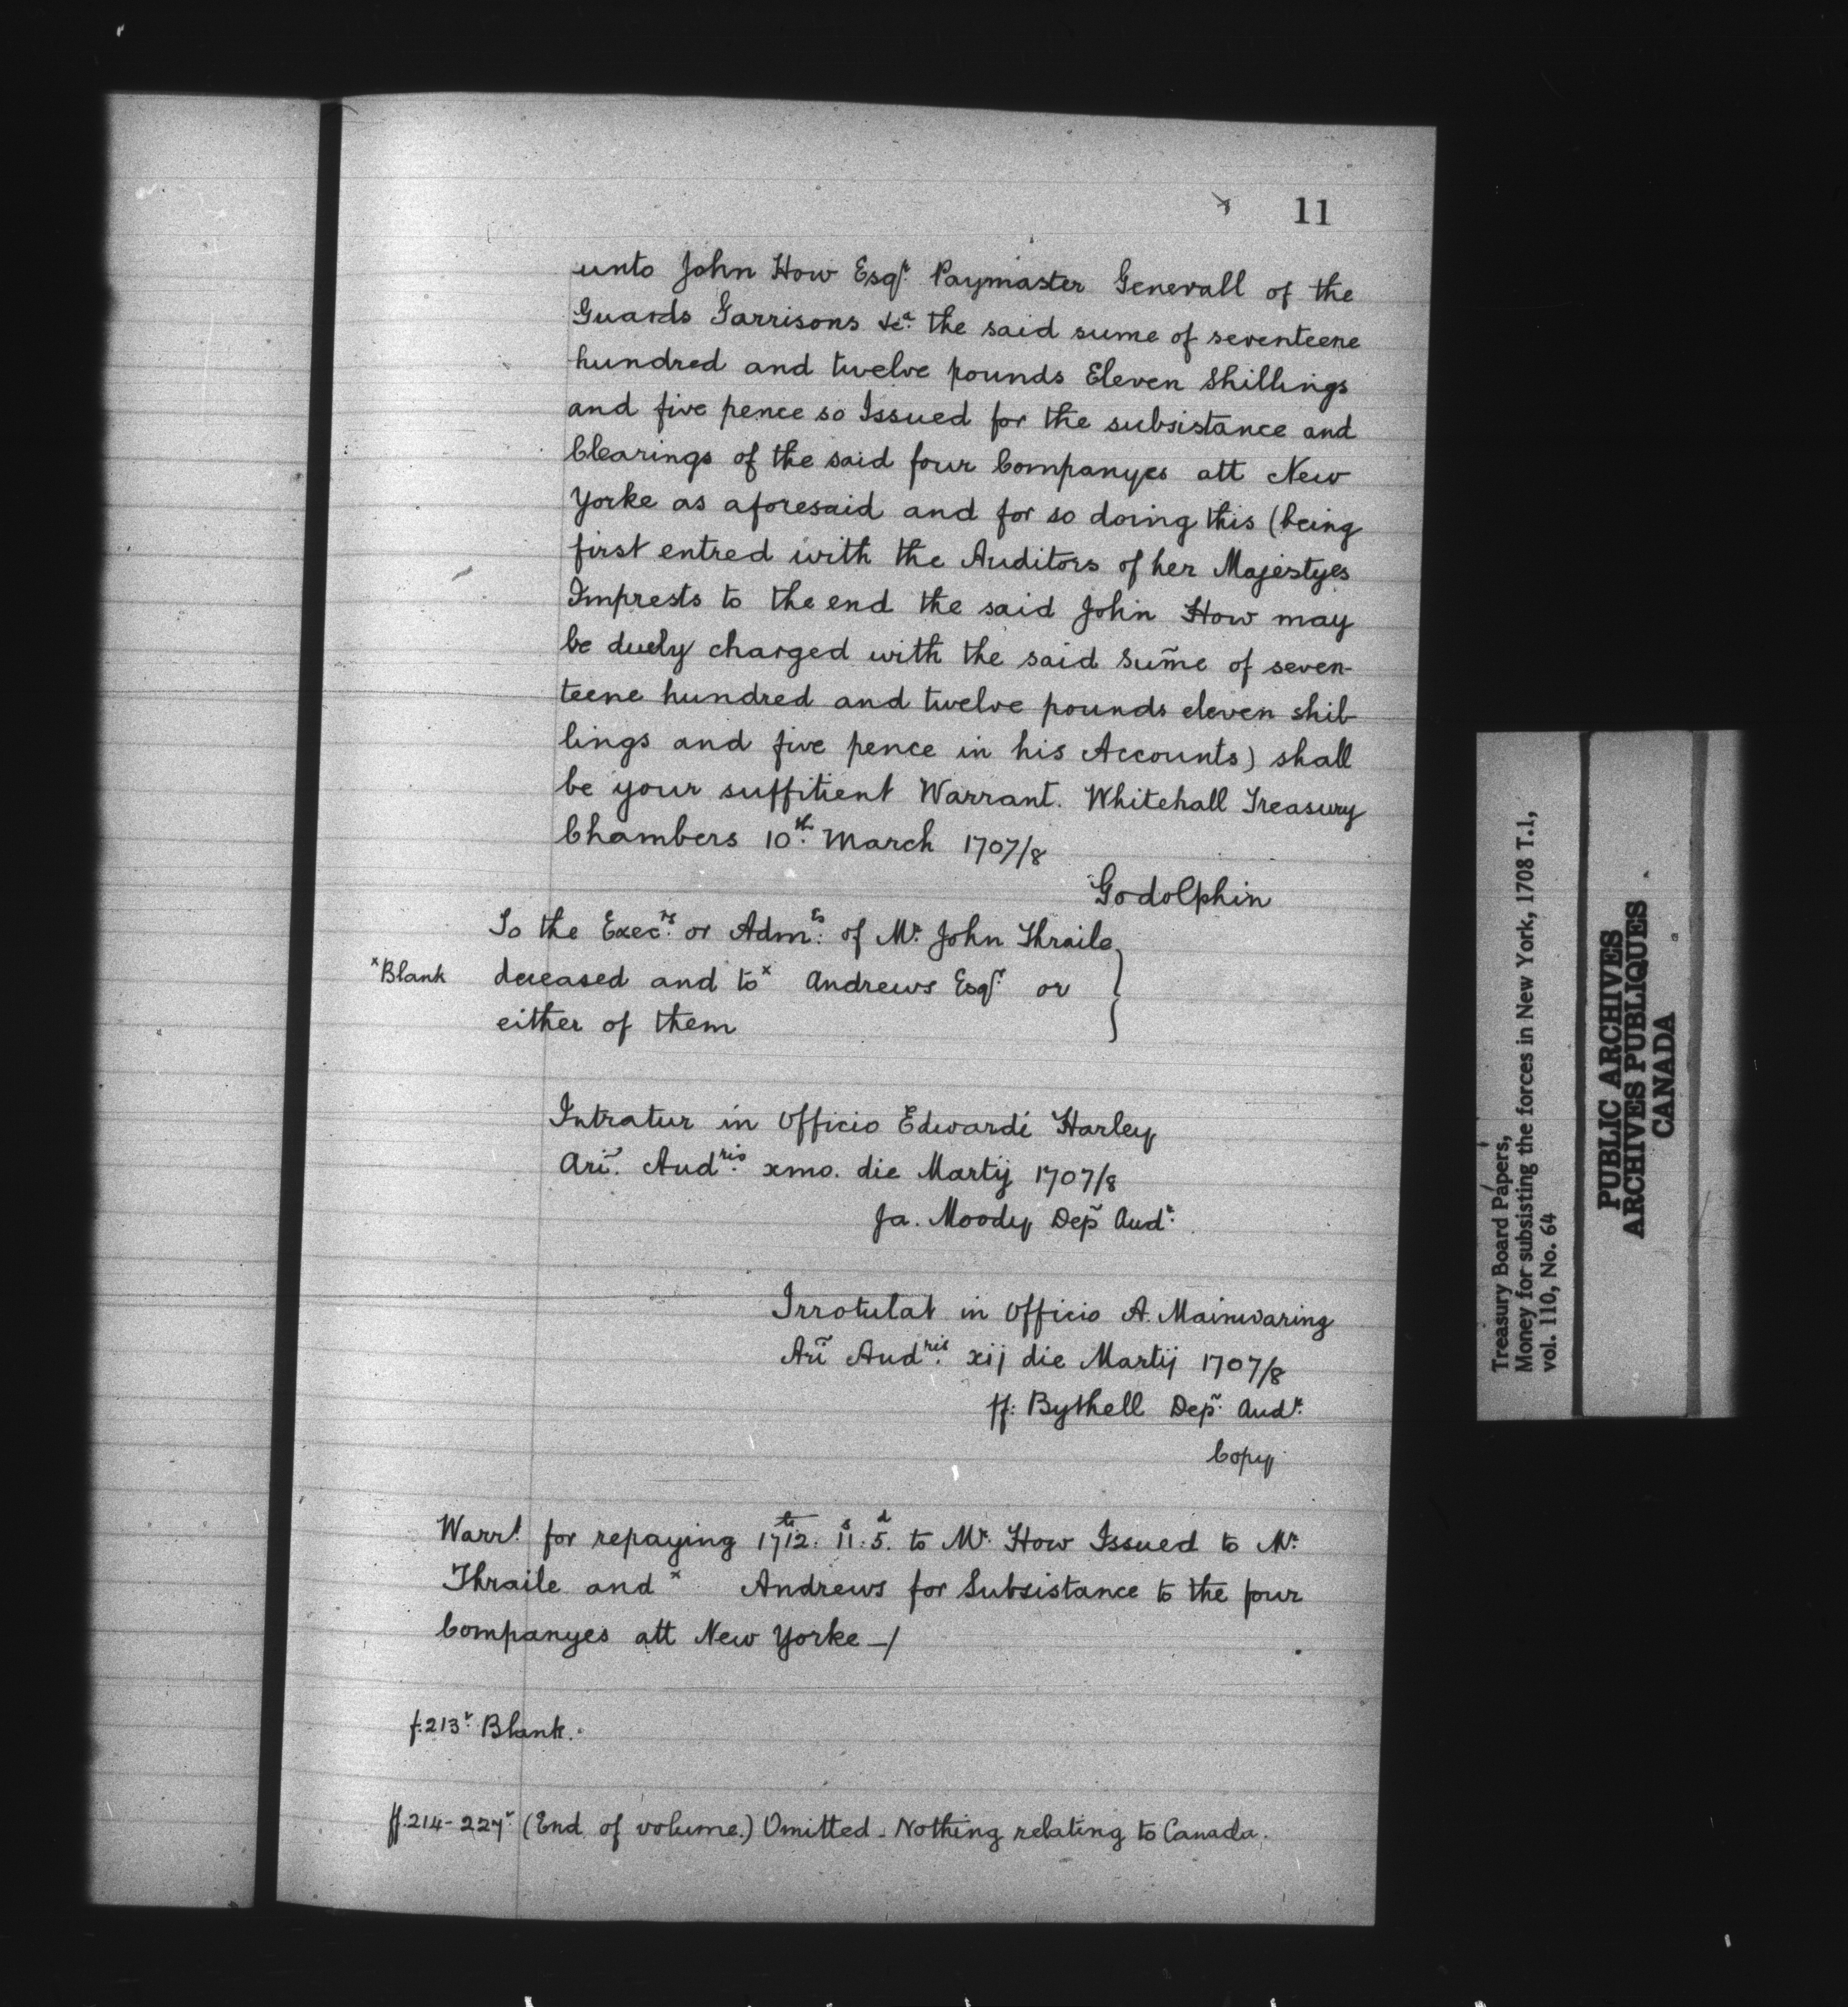 11
unto John How Esqr. Paymaster Generall of the
Guards Garrisons &ca. the said sume of seventeene
hundred and twelve pounds Eleven Shillings
and five pence so Issued for the subsistance and
Clearings of the said four Companyes att New
Yorke as aforesaid and for so doing this (being
first entred with the Auditors of her Majestyes
Imprests to the end the said John How may
be duely charged with the said Sum̃e of seven-
teene hundred and twelve pounds eleven shil-
lings and five pence in his Accounts) shall
be your suffitient Warrant. Whitehall Treasury
Chambers 10th. March 1707/8
Godolphin
To the Execrs. or Adms. of Mr. John Thraile
xBlank deceased and to x Andrews Esqr. or
either of them
Intratur in Officio Edwardi Harley
Arĩ. Audris. xmo. die Martij 1707/8
Ja. Moody Dep̃ Audr.
Irrotulat in Officio A. Mainwaring
Arĩ Audris. xij die Martij 1707/8
ff: Bythell Dep̃. Audr.
Copy
Warrt. for repaying 1712li. 11s. 5d. to Mr. How Issued to Mr.
Thraile and x Andrews for Subsistance to the four
Companyes att New Yorke -/
f.213v. Blank.
ff.214-227v. (End of volume.) Omitted. Nothing relating to Canada.
Treasury Board Papers,
Money for subsisting the forces in New York, 1708 T.1,
vol. 110, No. 64
PUBLIC ARCHIVES
ARCHIVES PUBLIQUES
CANADA